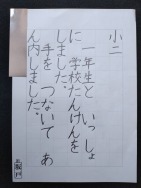 小二
一年生と いっしょ
に 学校たんけんを
しました。
手を つないで あ
ん内しました。